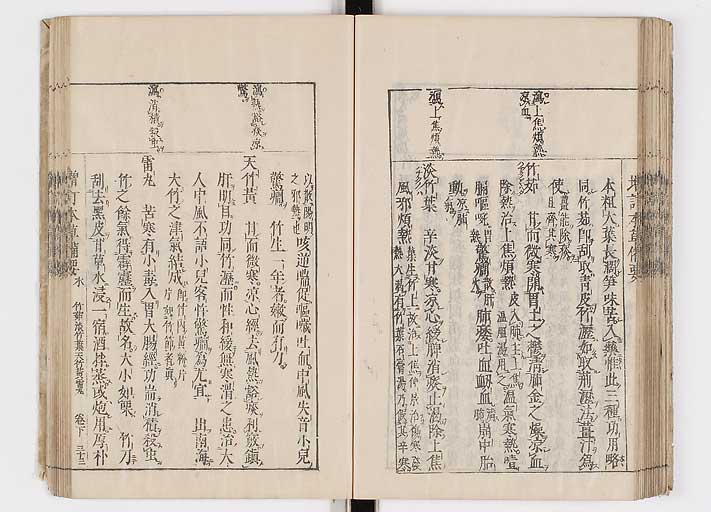 瀉上焦煩熱
涼血
瀉上焦煩熱
本粗大葉長潤笋味苦入藥惟此三種功用略
同竹茹即刮取青皮竹瀝如取荊瀝法薑汁為
使
竹茹 甘而微寒開胃土之鬱清肺金之燥涼血
除熱治上焦煩熱
膈嘔吐
驚癇
肺痿吐血衄血
崩中胎
動
淡竹葉 辛淡甘寒涼心緩脾消痰止渴除上焦
風邪煩熱
瀉熱豁痰涼
驚
瀉消積殺蟲
以散陽明
之邪熱也
咳逆喘促嘔噦吐血中風失音小兒
驚癇 竹生一年者嫩而有力
天竹黃 甘而微寒涼心經去風熱豁痰利竅鎮
肝明目功同竹瀝而性和緩無寒滑之患治大
人中風不語小兒客忤驚癇為尤宜 出南海
大竹之津氣結成
片如竹節者真
雷丸 苦寒有小毒入胃大腸經功耑消積殺蟲
竹之餘氣得霹靂而生故名大小如栗 竹刀
刮去黑皮甘草水浸一宿酒拌蒸或炮用厚朴
增訂本草備要
木 竹茹淡竹葉天竹黃雷丸 卷下 三十三